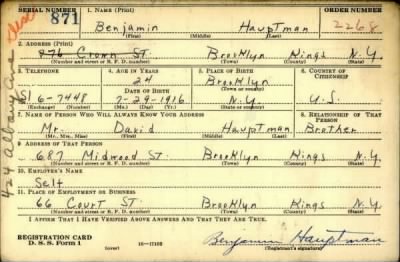 SERIAL NUMBER 1. NAME (Print) ORDER NUMBER
871 Benjamin Hauptman 2268
(First) (Middle) (Last)
2. ADDRESS (Print)
876 Crown St. Brooklyn Kings N.Y.
(Number and street or R. F. D. number) (Town) (County) (State)
3. TELEPHONE 4. AGE IN YEARS 5. PLACE OF BIRTH 6. COUNTRY OF CITIZENSHIP
24 Brooklyn
(Town or county)
Sl 6-7448 DATE OF BIRTH
7-29-1916 N.Y. U.S.
(Exchange) (Number) (Mo.) (Day) (Yr.) (State or country)
7. NAME OF PERSON WHO WILL ALWAYS KNOW YOUR ADDRESS 8. RELATIONSHIP OF THAT PERSON
Mr. David Hauptman Brother
(Mr., Mrs., Miss) (First) (Middle) (Last)
9. ADDRESS OF THAT PERSON
687 Midwood St. Brooklyn Kings N.Y.
(Number and street or R. F. D. number) (Town) (County) (State)
10. EMPLOYER'S NAME
Self
11. PLACE OF EMPLOYMENT OR BUSINESS
66 Court St. Brooklyn Kings N.Y.
(Number and street or R. F. D. number) (Town) (County) (State)
I AFFIRM THAT I HAVE VERIFIED ABOVE ANSWERS AND THAT THEY ARE TRUE.
REGISTRATION CARD
D. S. S. Form 1 (over) 16-17105 Benjamin Hauptman
(Registrant's signature)
424 Albany Ave